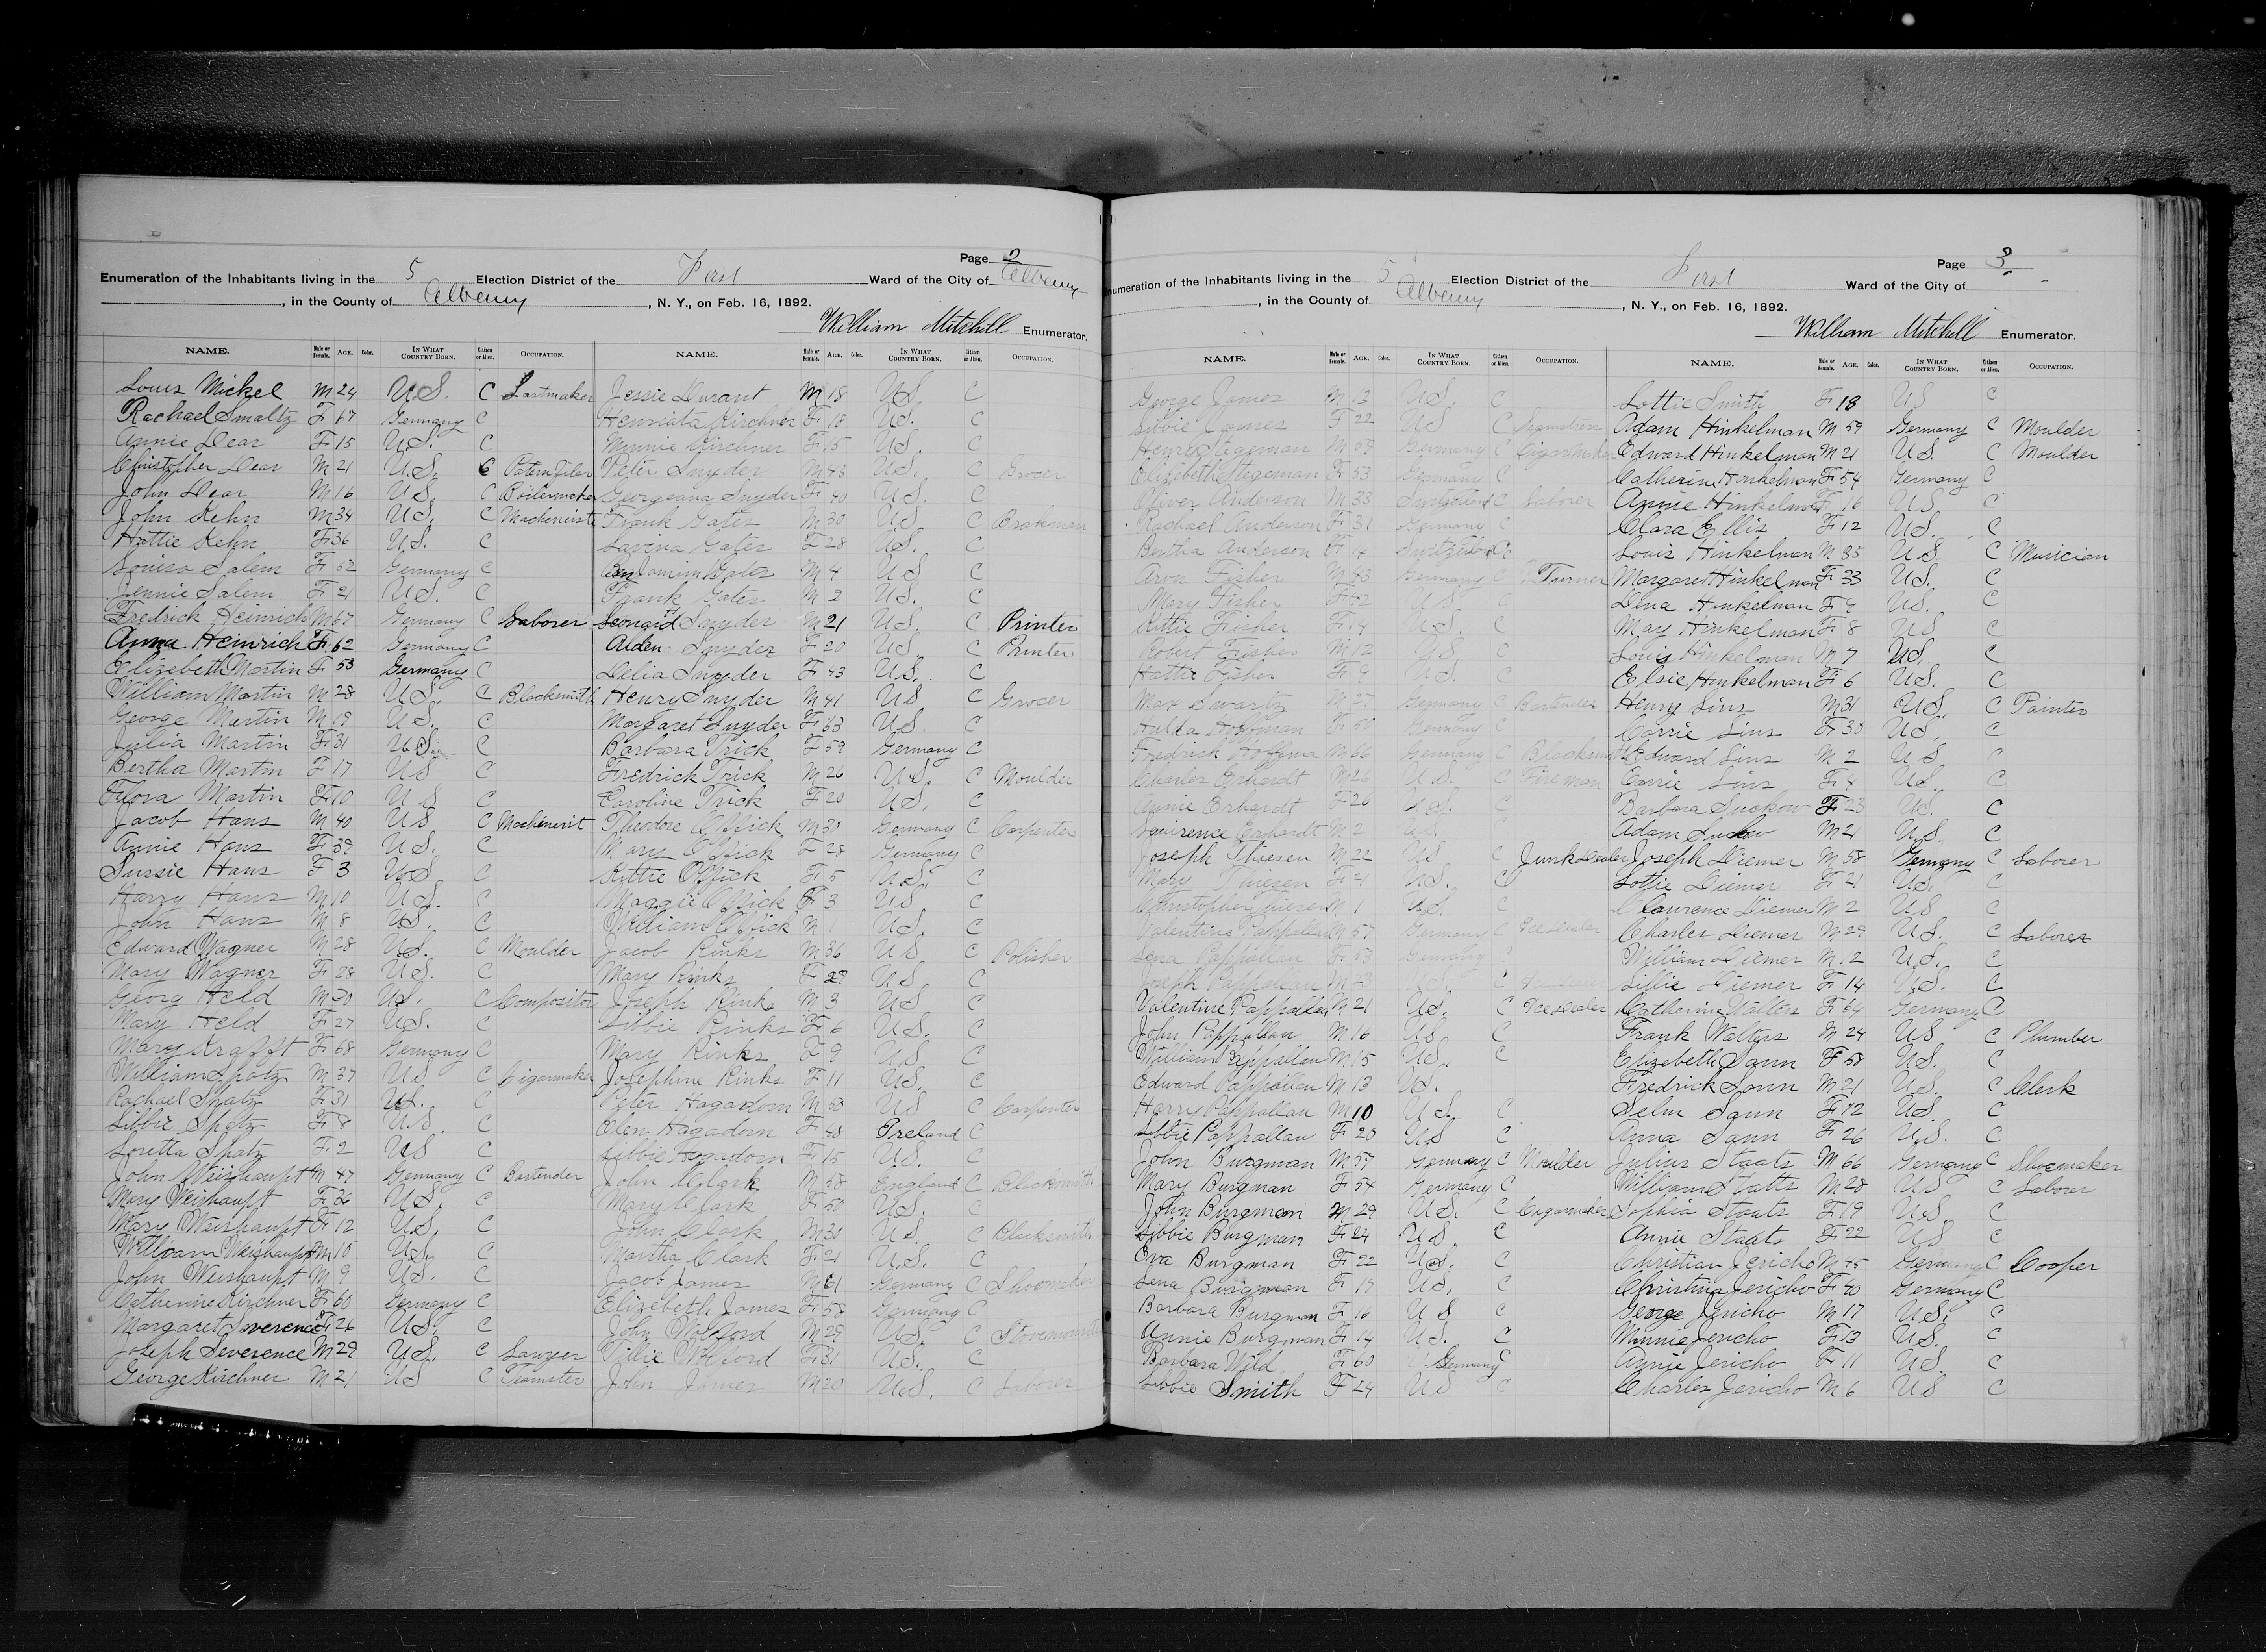 Page 2
Enumeration of the Inhabitants living in the 5 Election District of the First Ward of the City of Albany
, in the County of Albany, N. Y., on Feb. 16, 1892.
William Mitchill Enumerator.
NAME. Male or Female. AGE. Color. IN WHAT COUNTRY BORN. Citizen or Alien. OCCUPATION. NAME. Male or Female. AGE. Color. IN WHAT COUNTRY BORN. Citizen or Alien. OCCUPATION.
Louis Mickel M 24 U.S. C Lastmaker
Rachael Smaltz F 67 Germany C
Annie Dear F 15 U.S. C
Christopher Dear M 21 U.S. C
John Dear M 16 U.S. C Boilermaker
John Kehn M 34 U.S. C Machenist
Hattie Kehn F 36 U.S. C
Louisa Salem F 52 Germany C
Jennie Salem F 21 U.S. C
Fredrick Heinrich M 67 Germany C Laborer
Anna Heinrich F 62 Germany C
Elizebeth Martin F 53 Germany C
William Martin M 28 U.S. C Blacksmith
George Martin M 19 U.S. C
Julia Martin F 31 U.S. C
Bertha Martin F 17 US C
Flora Martin F 10 U S C
Jacob Hans M 40 US C Machenist
Annie Hans F 39 U.S. C
Sussie Hans F 3 US C
Harry Hans M 10 U.S. C
John Hans M 8 U.S. C
Edward Wagner M 28 U.S. C Moulder
Mary Wagner F 28 U.S. C
Georg Held M 30 U.S. C Compositor
Mary Held F 27 U.S. C
Mary Krafft F 68 Germany C
William Spatz M 37 US C Cigarmaker
Rachael Spatz F 31 U.S. C
Libbie Spatz F 8 U.S. C
Loretta Spatz F 2 US C
John Weishaupt M 47 Germany C Bartender
Mary Weishaupt F 36 U.S. C
Mary Weishaupt F 12 U.S. C
William Weishaupt M 10 U.S. C
John Weishaupt M 9 U.S. C
Catherine Kirchner F 60 Germany C
Margaret Severence F 26 U.S. C
Joseph Severence M 29 U.S. C Lawyer
George Kirchner M 21 US C Teamster
Jessie Durant M 18 US C
Henriata Kirchner F 18 U.S. C
Minnie Kirchner F 15 US C
Peter Snyder M 43 U.S. C Grocer
Georgeana Snyder F 40 U.S. C
Frank Gates M 30 US C Brakman
Lavina Gates F 28 U.S. C
Benjamin Gates M 4 US C
Frank Gates M 2 U.S. C
Leonard Snyder M 21 U.S. C Printer
Alden Snyder F 20 US C Printer
Delia Snyder F 43 U.S. C
Henry Snyder M 41 US C Grocer
Margaret Snyder F 63 U.S. C
Barbara Trick F 59 Germany C
Fredrick Trick M 26 U.S. C Moulder
Caroline Trick F 20 U.S. C
Theodore Offick M 30 Germany C Carpenter
Mary Offick F 28 Germany C
Kittie Offick F 5 U.S. C
Maggie Offick F 3 US C
William Offick M 1 US C
Jacob Rinks M 36 US C Polisher
Mary Rinks F 29 US C
Joseph Rinks M 3 US C
Libbie Rinks F 6 U.S. C
Mary Rinks F 9 U.S. C
Josephine Rinks F 11 US. C
Peter Hagadorn M 53 US C Carpenter
Elen Hagadorn F 48 Ireland C
Libbie Hagadorn F 15 US. C
John Clark M 58 England C Blacksmith
Mary Clark F 50 U.S. C
John Clark M 30 US C Blacksmith
Martha Clark F 21 U.S. C
Jacob James M 61 Germany C Shoemaker
Elizebeth James F 58 Germany C
John Wolford M 29 U.S. C
Tillie Wolford F 31 U.S. C
John James M 20 U.S. C Laborer
Page 3
Enumeration of the Inhabitants living in the 5 Election District of the First Ward of the City of
, in the County of Albany, N. Y., on Feb. 16, 1892.
William Mitchill Enumerator.
NAME. Male or Female. AGE. Color. IN WHAT COUNTRY BORN. Citizen or Alien. OCCUPATION. NAME. Male or Female. AGE. Color. IN WHAT COUNTRY BORN. Citizen or Alien. OCCUPATION.
George James M 13 U.S. C
Libbie James F 22 US C
Henry Stageman M 59 Germany C Cigarmaker
Elizebeth Stageman F 53 Germany C
Oliver Anderson M 33 C Laborer
Rachael Anderson F 31 Germany C
Bertha Anderson F 14 C
Aron Fisher M 43 Germany C Turner
Mary Fisher F 42 US C
Kittie Fisher F 14 U.S. C
Robert Fisher M 12 US C
Hattie Fisher F 9 U.S. C
Max Swartz M 27 Germany C Bartender
Hulda Hoffman F 50 Germany C
Fredrick Hoffman M 66 Germany C Blacksmith
Charles Erhardt M 26 U.S. C Fireman
Annie Erhardt F 26 U.S. C
Lawrence Erhardt M 2 U.S. C
Joseph Thiesen M 22 US C Junk Dealer
Mary Thiesen F 21 U.S. C
Christopher Thiesen M 1 U.S. C
Valentine Pappallan M 57 Germany C Ice Dealer
Lena Pappallan F 53 Germany C
Joseph Pappallan M 23 U.S. C
Valentine Pappallan M 21 U.S. C Ice Dealer
John Pappallan M 16 US C
William Pappallan M 15 U.S. C
Edward Pappallan M 13 U.S.
Harry Pappallan M 10 U.S. C
Libbie Pappallan F 20 US C
John Burgman M 57 Germany C Moulder
Mary Burgman F 54 Germany C
John Burgman M 29 U.S. C Cigarmaker
Libbie Burgman F 24 US C
Eva Burgman F 22 U.S. C
Lena Burgman F 19 U.S. C
Barbara Burgman F 16 U S C
Annie Burgman F 14 U.S. C
Barbara Wild F 60 Germany C
Libbie Smith F 24 US C
Lottie Smith F 18 US C
Adam Hinkelman M 59 Germany C Moulder
Edward Hinkelman M 21 US C Moulder
Catherine Hinkelman F 54 Germany C
Annie Hinkelman F 16 US C
Clara Ellis F 12 U.S. C
Louis Hinkelman M 35 U.S. C Musician
Margaret Hinkelman F 33 U.S. C
Lena Hinkelman F 9 U.S. C
May Hinkelman F 8 US C
Louis Hinkelman M 7 U.S. C
Elsie Hinkelman F 6 U.S. C
Henry Sins M 31 U.S. C Painter
Carrie Sins F 30 U.S. C
Edward Sins M 2 U S C
Carrie Sins F 4 U.S. C
Barbara Suckow F 23 U.S. C
Adam Suckow M 21 U.S. C
Joseph Diemer M 58 Germany C Laborer
Lottie Diemer F 21 U.S. C
Lawrence Diemer M 2 US C
Charles Diemer M 29 U.S. C Laborer
William Diemer M 12 U.S. C
Lillie Diemer F 14 U.S. C
Catherine Walters F 64 Germany C
Frank Walters M 24 US C Plumber
Elizebeth Sann F 58 U.S. C
Fredrick Sann M 21 US C Clerk
Selm Sann F 12 US C
Anna Sann F 26 U.S. C
Julius Staats M 66 Germany C Shoemaker
William Staats M 28 US C Laborer
Sophia Staats F 19 U.S. C
Annie Staats F 22 US C
Christian Jericho M 45 Germany C Cooper
Christina Jericho F 40 Germany C
George Jericho M 17 U.S. C
Minnie Jericho F 13 U.S. C
Annie Jericho F 11 U.S. C
Charles Jericho M 6 US C